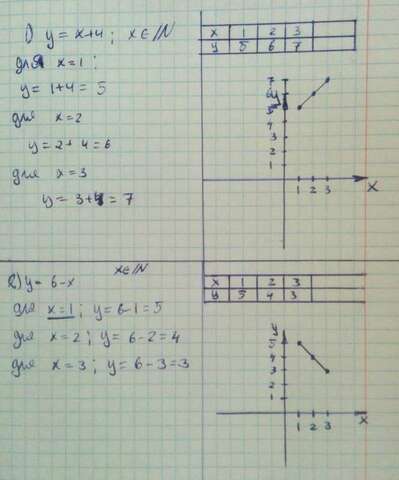 1) y = x+4; x∈ℕ
для x=1:
y = 1+4 = 5
для x=2
y = 2+4 = 6
для x=3
y = 3+4 = 7
x 1 2 3
y 5 6 7
7
6
y
5
4
3
2
1
1 2 3
x
x∈ℕ
2) y = 6-x
для x=1; y = 6-1 = 5
для x=2; y = 6-2 = 4
для x=3; y = 6-3 = 3
x 1 2 3
y 5 4 3
y
5
4
3
2
1
1 2 3
x